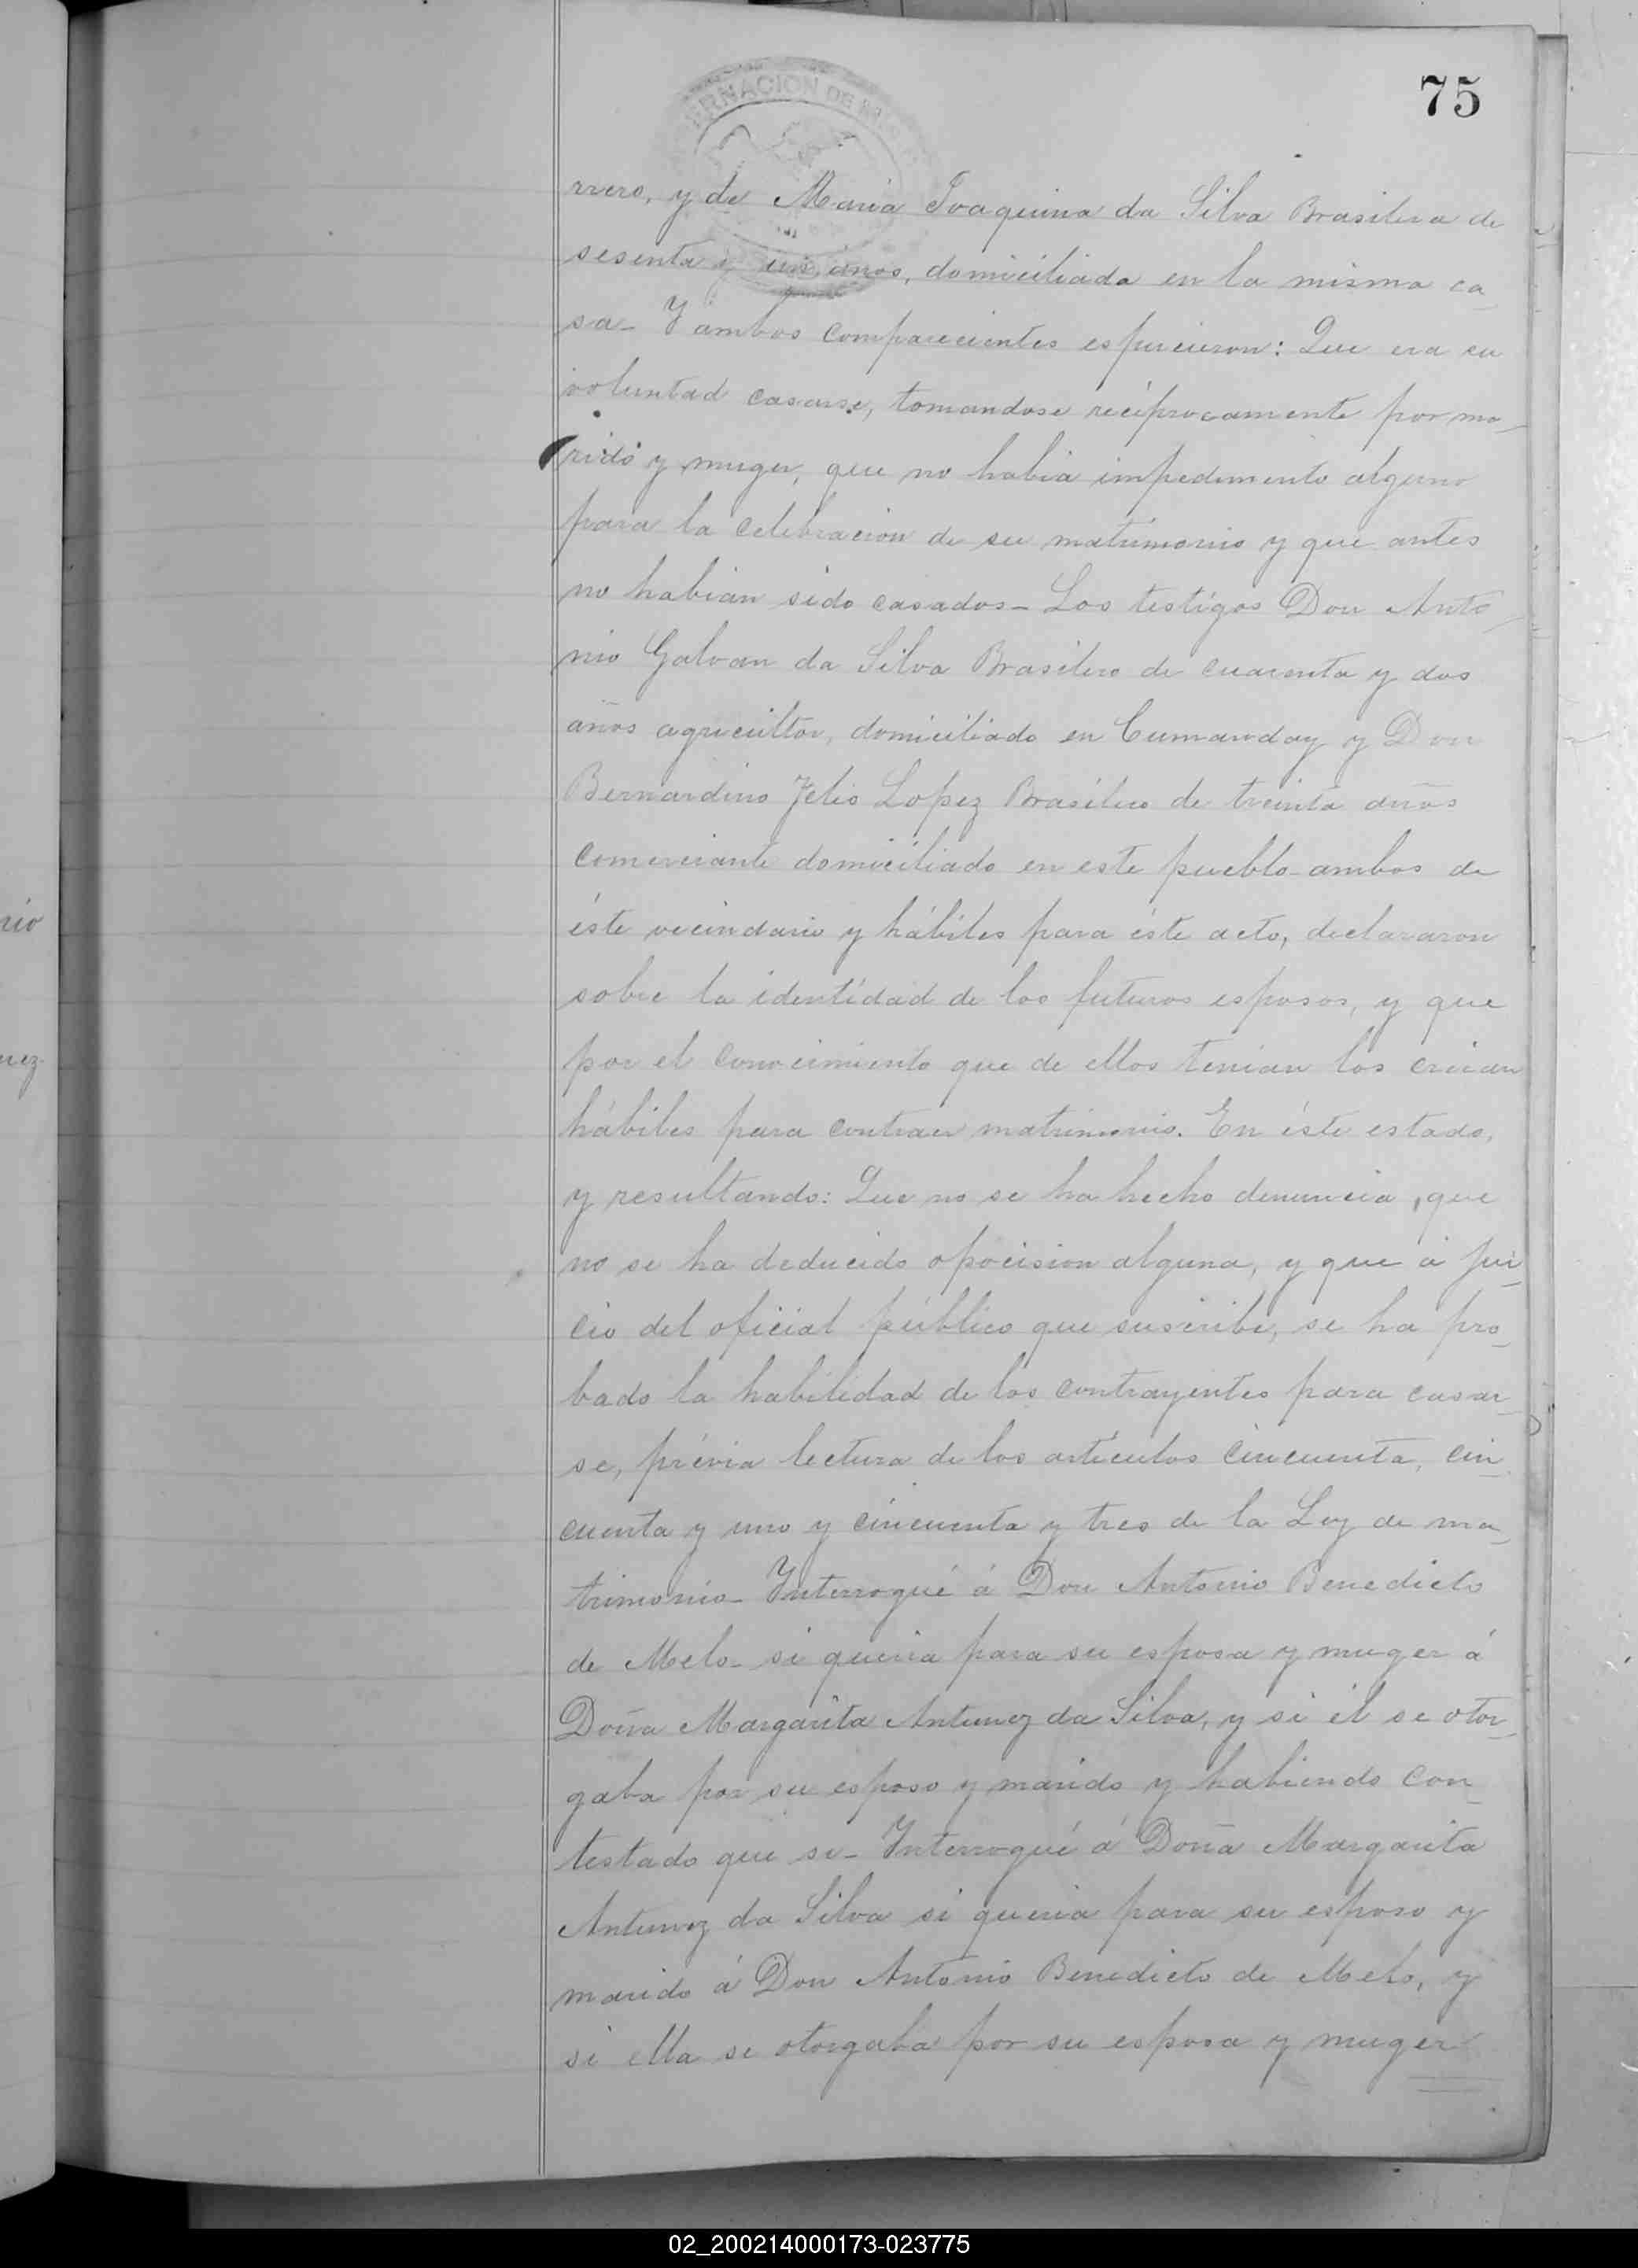 75
RNACION DE
rrero, y de Maria Joaquina da Silva Brasilera de
sesenta y un años, domiciliada en la misma ca
sa- Y ambos comparecientes espusieron: Que era su
voluntad casarse, tomandose reciprocamente por ma-
rido y muger, que no habia impedimento alguno
para la celebracion de su matrimonio y que antes
no habian sido casados- Los testigos Don Anto-
nio Galvan da Silva Brasilero de cuarenta y dos
años agricultor, domiciliado en Cumanday y Don
Bernardino Felis Lopez Brasilero de treinta años
comerciante domiciliado en este pueblo- ambos de
éste vecindario y hábiles para éste acto, declararon
sobre la identidad de los futuros esposos, y que
por el conocimiento que de ellos tenian los creian
hábiles para contraer matrimonio. En éste estado,
y resultando: Que no se ha hecho denuncia, que
no se ha deducido opocision alguna, y que á jui-
cio del oficial público que suscribe, se ha pro-
bado la habilidad de los contrayentes para casar-
se, prévia lectura de los artículos cincuenta, cin-
cuenta y uno y cincuenta y tres de la Ley de ma-
trimonio- Interrogué á Don Antonio Benedicto
de Melo- si queria para su esposa y muger á
Doña Margarita Antunez da Silva, y si él se otor-
gaba por su esposo y marido y habiendo con-
testado que si- Interrogué á Doña Margarita
Antunez da Silva si queria para su esposo y
marido á Don Antonio Benedicto de Melo, y
si ella se otorgaba por su esposa y muger
rio
nez-
02_200214000173-023775